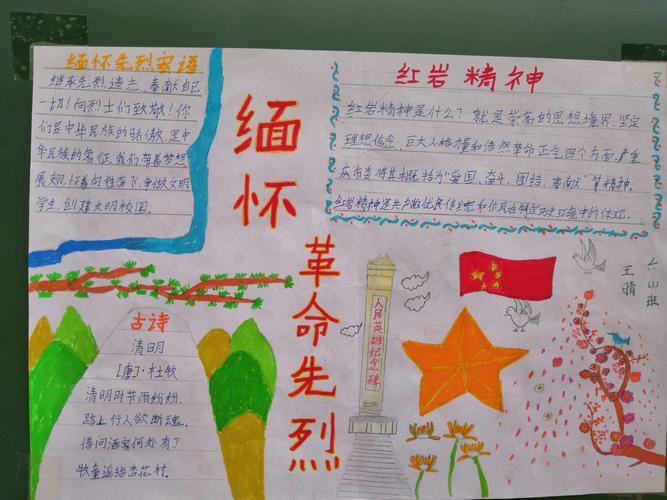 缅怀先烈寄语
继承先烈遗志,奉献自己
一切!向烈士们致敬!你
们是中华民族的骄傲,是中
华民族的象征,我们带着梦想
展翅,怀着向往奋飞,争做文明
学生,创建文明校园。
缅怀
革命先烈
红岩精神
红岩精神是什么?就是崇高的思想境界,坚定
理想信念、巨大人格力量和浩然革命正气四个方面,重
庆市委将其概括为“爱国、奋斗、团结、奉献”等精神。
红岩精神是共产党优良传统和作风在特定历史环境中的体现。
古诗
清明
[唐]·杜牧
清明时节雨纷纷,
路上行人欲断魂。
借问酒家何处有?
牧童遥指杏花村。
人民英雄纪念碑
王晴